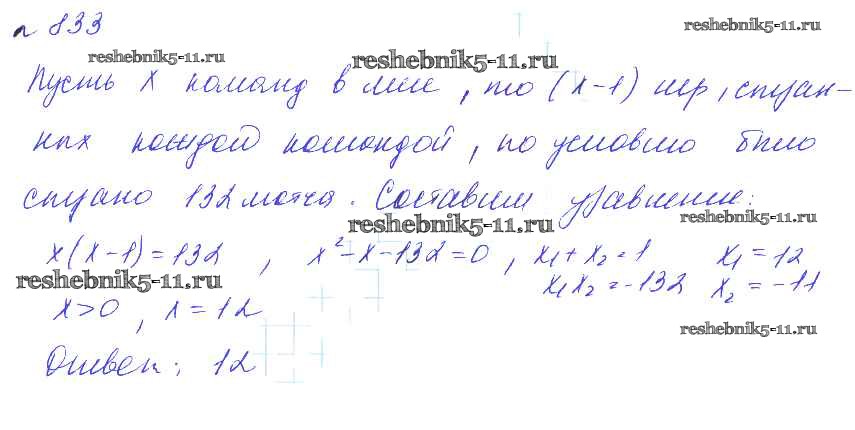 n 833
reshebnik5-11.ru
reshebnik5-11.ru reshebnik5-11.ru
Пусть x команд в лиге, то (x-1) игр, сыгран-
ных каждой командой, по условию было
сыграно 132 матча. Составим уравнение:
reshebnik5-11.ru reshebnik5-11.ru
x(x-1)=132, x²-x-132=0, x₁+x₂=1 x₁=12
reshebnik5-11.ru x₁x₂=-132 x₂=-11
x>0, x=12
reshebnik5-11.ru
Ответ: 12